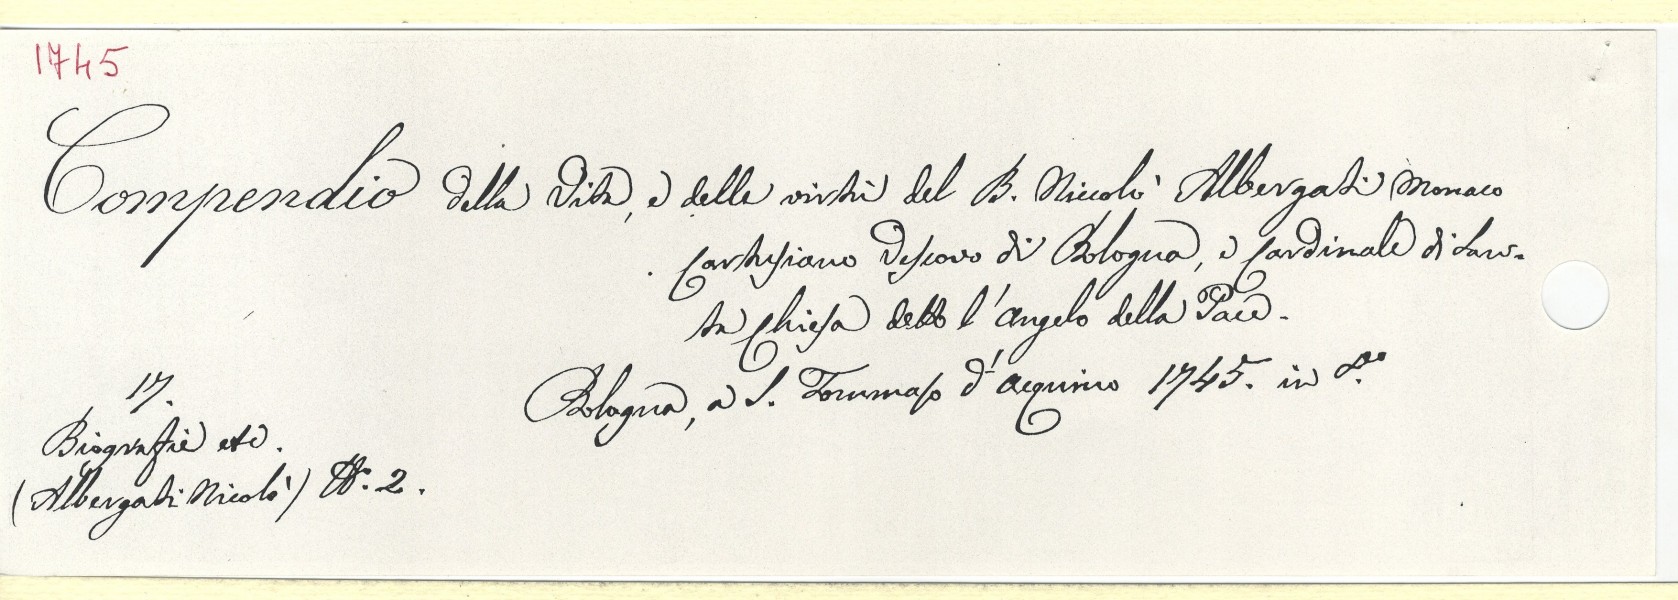 1745
Compendio della Vita, e delle virtù del B. Niccolò Albergati Monaco
Certosiano Vescovo di Bologna, e Cardinale di San-
ta Chiesa detto l'angelo della Pace.
Bologna, a S. Tommaso d'Acquino 1745. in 8.o
17.
Biografie etc.
(Albergati Nicolò) N.o 2.